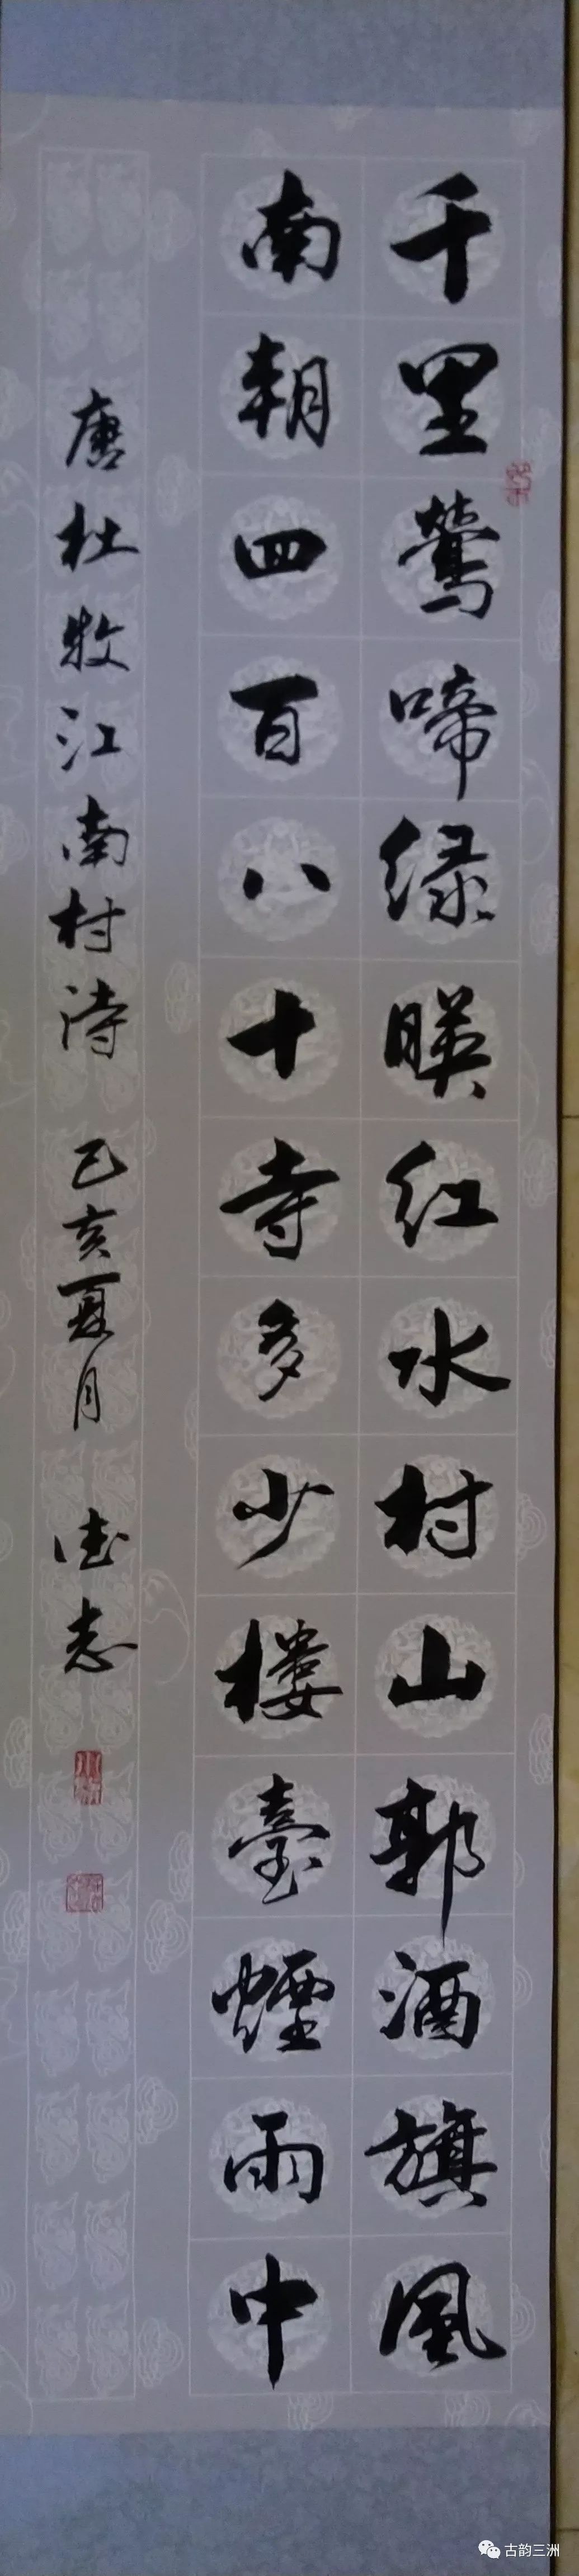 千里鶯啼绿暎红水村山郭酒旗風
南朝四百八十寺多少楼臺煙雨中
唐杜牧江南村诗 己亥夏月 德志
古韵三洲